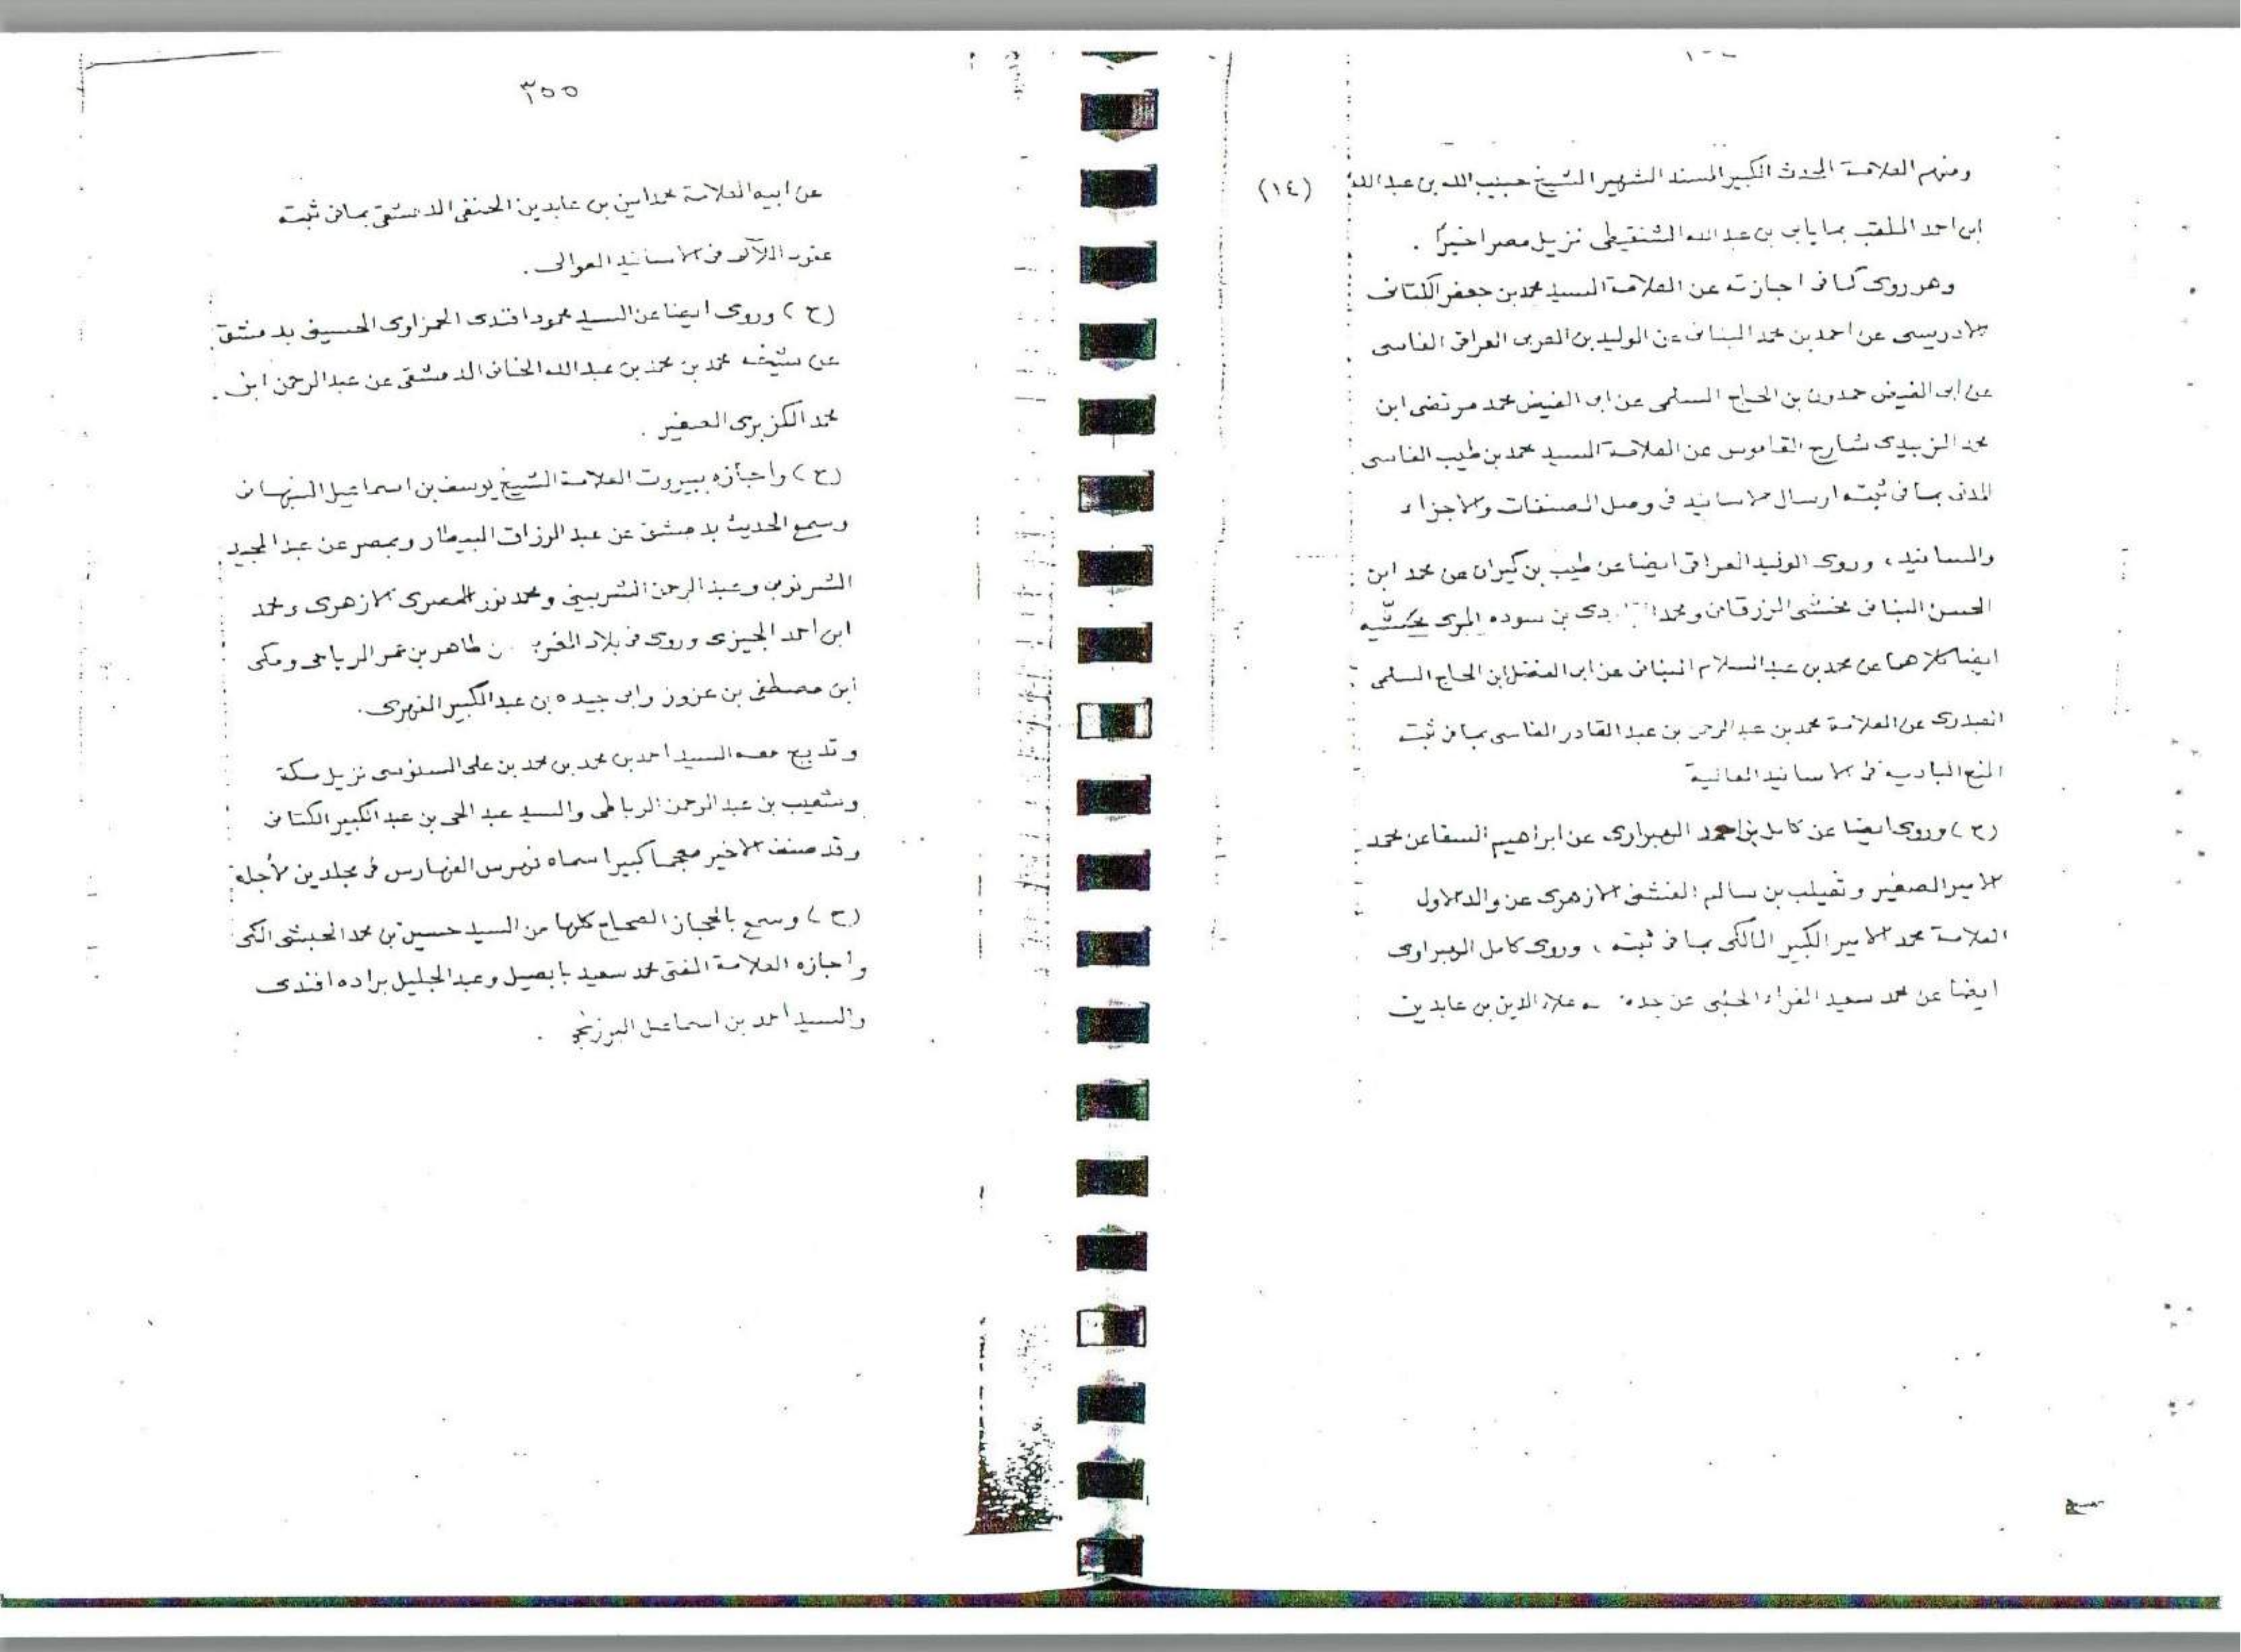 (١٤) ومنهم العلامة المحدث الكبير المسند الشهير الشيخ حبيب الله بن عبد الله
ابن احمد الملقب بمايابى بن عبد الله الشنقيطى نزيل مصر اخيرا .
وهو روى كما فى اجازته عن العلامة السيد محمد بن جعفر الكتانى
الادريسى عن احمد بن محمد البنانى عن الوليد بن العربى العراقى الفاسى
عن ابى الفيض حمدون بن الحاج السلمى عن ابى الفيض محمد مرتضى ابن
محمد الزبيدى شارح القاموس عن العلامة السيد محمد بن طيب الفاسى
المدنى بما فى ثبته ارسال الاسانيد فى وصل المصنفات والاجزاء
والمسانيد ، وروى الوليد العراقى ايضا عن طيب بن كيران عن محمد ابن
الحسن البنانى محشى الزرقانى ومحمد دى بن سوده المرى
ايضا كلاهما عن محمد بن عبد السلام البنانى عن ابى الفضل ابن الحاج السلمى
عن العلامة محمد بن عبد الرحمن بن عبد القادر الفاسى بما فى ثبته
المنح البادية فى الاسانيد العالية
(ح) وروى ايضا عن كامل بن احمد الهبراوى عن ابراهيم السقا عن محمد
الامير الصغير وثعيلب بن سالم الفشنى الازهرى عن والد الاول
العلامة محمد الامير الكبير المالكى بما فى ثبته ، وروى كامل الهبراوى
ايضا عن محمد سعيد الفراء الحنفى عن جده علاء الدين بن عابدين
٣٥٥
عن ابيه العلامة محمد امين بن عابدين الحنفى الدمشقى بما فى ثبته
عقود اللآلى فى الاسانيد العوالى .
(ح) وروى ايضا عن السيد محمود افندى الحمزاوى الحسينى بدمشق
عن شيخه محمد بن محمد بن عبد الله الخانى الدمشقى عن عبد الرحمن ابن
محمد الكزبرى الصغير .
(ح) واجازه ببيروت العلامة الشيخ يوسف بن اسماعيل النبهانى
وسمع الحديث بدمشق عن عبد الرزاق البيطار وبمصر عن عبد المجيد
الشرنوبى وعبد الرحمن الشربينى ومحمد نور المصرى الازهرى ومحمد
ابن احمد الجيزى وروى فى بلاد المغرب طاهر بن عمر الرياحى ومكى
ابن مصطفى بن عزوز وابى جيده بن عبد الكبير الفهرى .
وتدبج معه السيد احمد بن محمد بن محمد بن على السنوسى نزيل مكة
وشعيب بن عبد الرحمن الرباطى والسيد عبد الحى بن عبد الكبير الكتانى
وقد صنف الاخير معجما كبيرا اسماه فهرس الفهارس فى مجلدين لأجله
(ح) وسمع بالحجاز الصحاح كلها من السيد حسين بن محمد الحبشى المكى
واجازه العلامة المفتى محمد سعيد بابصيل وعبد الجليل براده افندى
والسيد احمد بن اسماعيل البرزنجى .